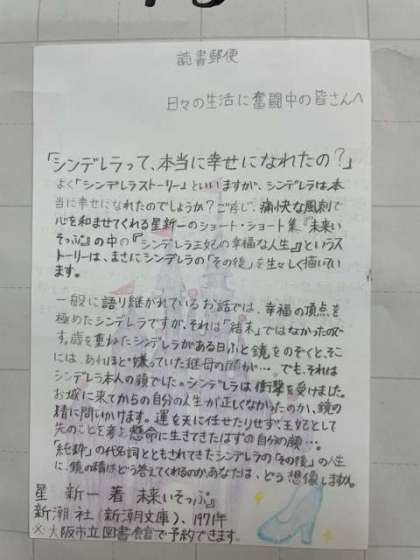 読書郵便
日々の生活に奮闘中の皆さんへ
「シンデレラって、本当に幸せになれたの?」
よく「シンデレラストーリー」といいますが、シンデレラは、本
当に幸せになれたのでしょうか?ご存じ、痛快な風刺で
心を和ませてくれる星新一のショート・ショート集『未来い
そっぷ』の中の『シンデレラ王妃の幸福な人生』というス
トーリーは、まさにシンデレラの「その後」を生々しく描いてい
ます。
一般に語り継がれているお話では、幸福の頂点を
極めたシンデレラですが、それは「結末」ではなかったので
す。歳を重ねたシンデレラがある日ふと鏡をのぞくと、そこ
には、あれほど嫌っていた継母の顔が…。でも、それは
シンデレラ本人の顔でした。シンデレラは衝撃を受けました。
お城に来てからの自分の人生が正しくなかったのか、鏡の
精に問いかけます。運を天に任せたりせず、王妃として
先のことを考え懸命に生きてきたはずの自分の顔…。
「純粋」の代名詞ともされてきたシンデレラの「その後」の人生
に、鏡の精はどう答えてくれるのか、あなたは、どう想像しますか。
星 新一 著 『未来いそっぷ』
新潮社(新潮文庫)、1971年
※大阪市立図書館で予約できます。